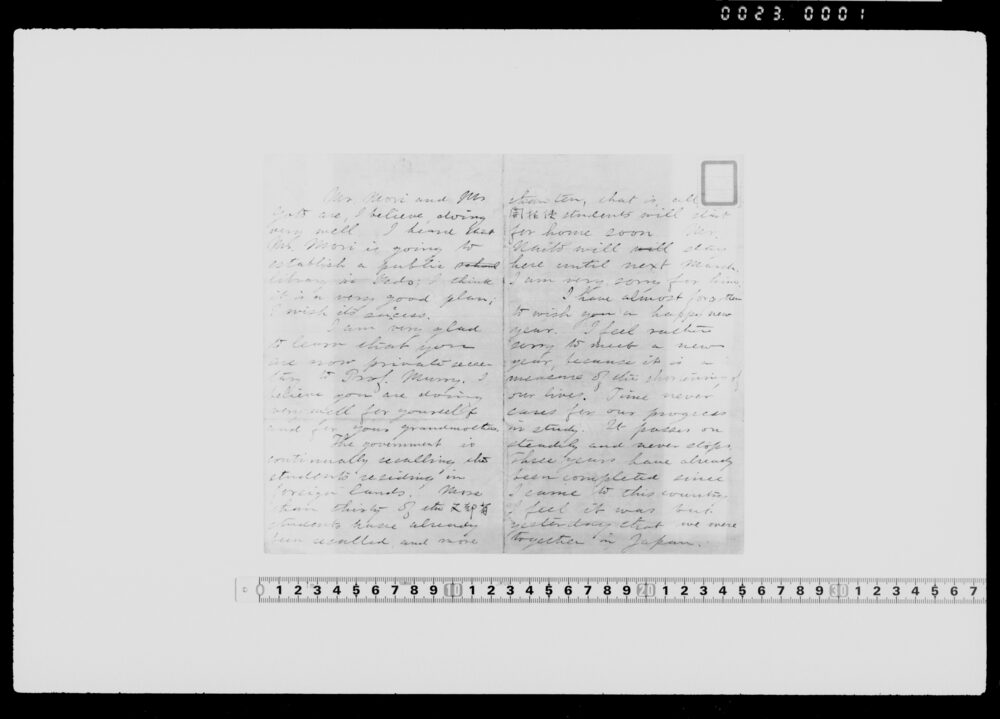 0023. 0001
Mr. Mori and Mr
are, I believe, doing
very well. I heard that
Mr. Mori is going to
establish a public school
library in Yedo; I think
it is a very good plan;
I wish its sucess.
I am very glad
to learn that you
are now private secre
tary to Prof. Murry. I
believe you are doing
very well for yourself
and for your grandmother.
The government is
continually recalling the
students residing in
foreign lands. More
than thirty of the 文部省
students have already
been recalled, and more
than ten, that is, all
students will start
for home soon Mr.
Naito will will stay
here until next March.
I am very sorry for him.
I have almost forgotten
to wish you a happy new
year. I feel rather
sorry to meet a new
year, because it is a
measure of the shortening of
our lives. Time never
cares for our progress
in study. It passes on
steadily and never stops.
Three years have already
been completed since
I came to this country.
I feel it was but
yesterday that we were
together in Japan.
0 1 2 3 4 5 6 7 8 9 10 1 2 3 4 5 6 7 8 9 20 1 2 3 4 5 6 7 8 9 30 1 2 3 4 5 6 7